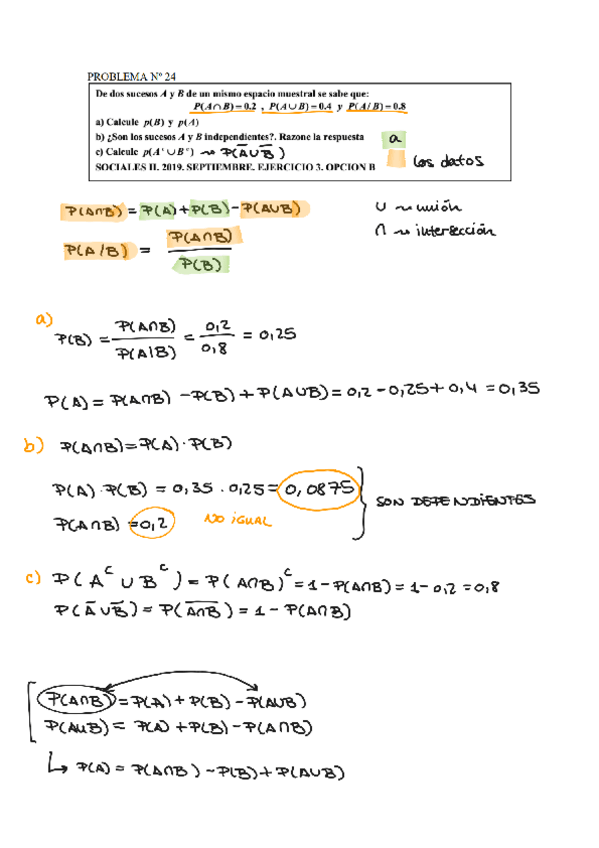 PROBLEMA Nº 24
De dos sucesos A y B de un mismo espacio muestral se sabe que:
P(A∩B) = 0.2 , P(A∪B) = 0.4 y P(A/B) = 0.8
a) Calcule p(B) y p(A)
b) ¿Son los sucesos A y B independientes?. Razone la respuesta
c) Calcule p(Aᶜ ∪ Bᶜ) ⇝ P(A̅∪B̅)
SOCIALES II. 2019. SEPTIEMBRE. EJERCICIO 3. OPCION B
a
los datos
P(A∩B) = P(A)+P(B)-P(A∪B)
P(A/B) = P(A∩B) / P(B)
∪ ⇝ unión
∩ ⇝ intersección
a)
P(B) = P(A∩B) / P(A|B) = 0,2 / 0,8 = 0,25
P(A) = P(A∩B) - P(B) + P(A∪B) = 0,2 - 0,25 + 0,4 = 0,35
b) P(A∩B)=P(A)·P(B)
P(A)·P(B) = 0,35 . 0,25 = 0,0875
P(A∩B) = 0,2 NO IGUAL
SON DEPENDIENTES
c) P(Aᶜ ∪ Bᶜ) = P(A∩B)ᶜ = 1 - P(A∩B) = 1 - 0,2 = 0,8
P(A̅∪B̅) = P(A̅∩̅B̅) = 1 - P(A∩B)
P(A∩B) = P(A) + P(B) - P(A∪B)
P(A∪B) = P(A) + P(B) - P(A∩B)
↳ P(A) = P(A∩B) - P(B) + P(A∪B)